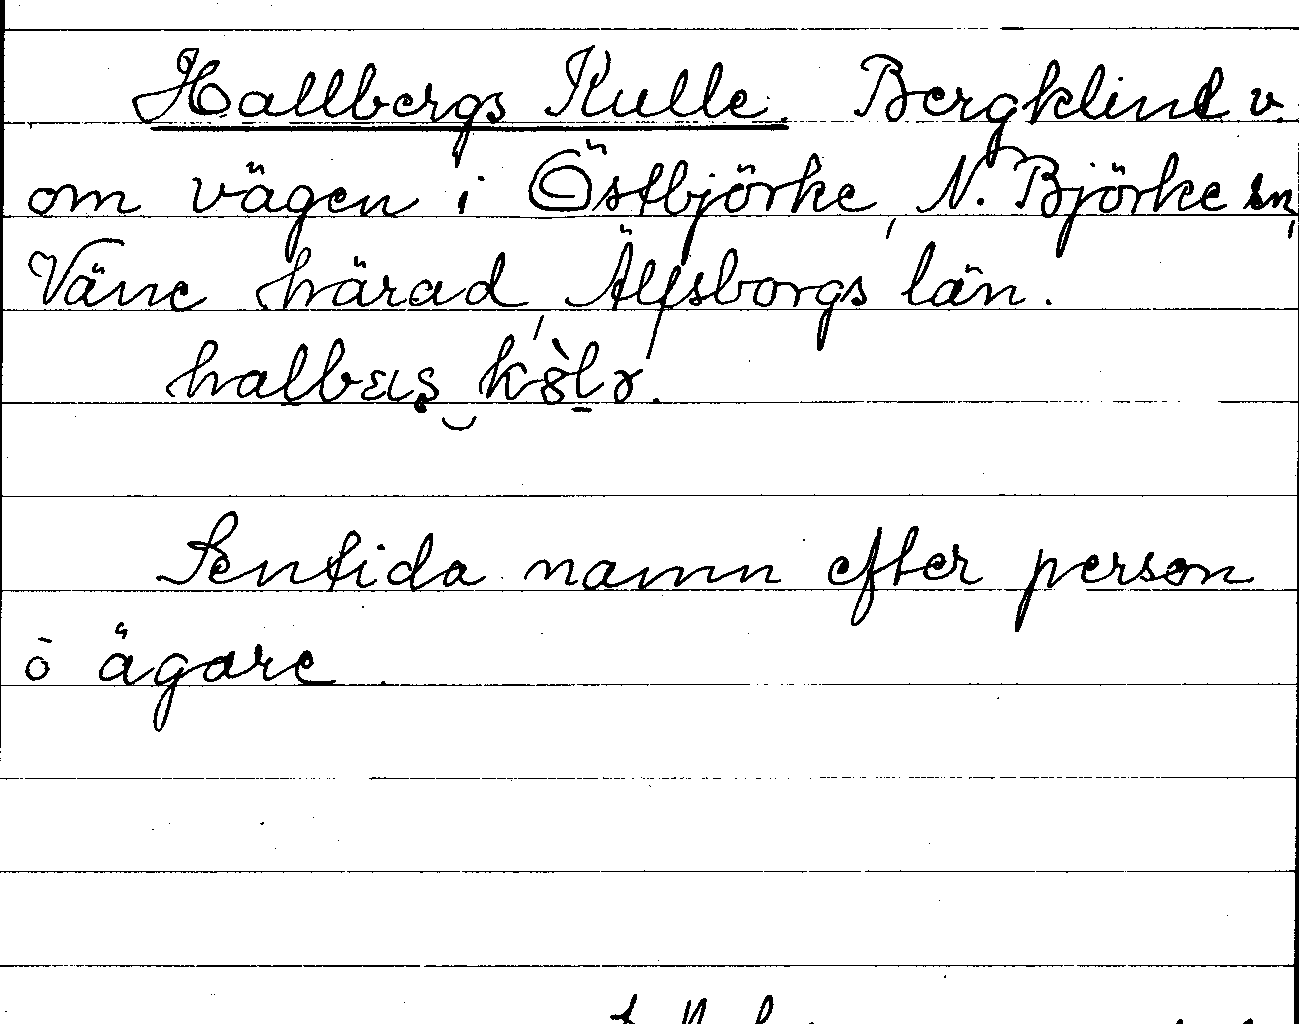 Hallbergs Kulle. Bergklint v.
om vägen i Östbjörke, N. Björke sn,
Väne härad, Älfsborgs län.
Sentida namn efter person
o ägare.